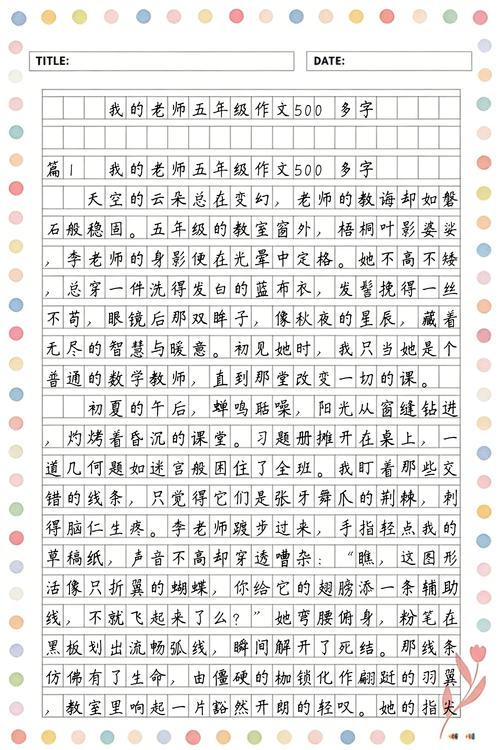 TITLE: DATE:
我的老师五年级作文500 多字
篇1 我的老师五年级作文500 多字
天空的云朵总在变幻，老师的教诲却如磐
石般稳固。五年级的教室窗外，梧桐叶影婆娑
，李老师的身影便在光晕中定格。她不高不矮
，总穿一件洗得发白的蓝布衣，发髻挽得一丝
不苟，眼镜后那双眸子，像秋夜的星辰，藏着
无尽的智慧与暖意。初见她时，我只当她是个
普通的数学教师，直到那堂改变一切的课。
初夏的午后，蝉鸣聒噪，阳光从窗缝钻进
，灼烤着昏沉的课堂。习题册摊开在桌上，一
道几何题如迷宫般困住了全班。我盯着那些交
错的线条，只觉得它们是张牙舞爪的荆棘，刺
得脑仁生疼。李老师踱步过来，手指轻点我的
草稿纸，声音不高却穿透嘈杂：“瞧，这图形
活像只折翼的蝴蝶，你给它的翅膀添一条辅助
线，不就飞起来了么？”她弯腰俯身，粉笔在
黑板划出流畅弧线，瞬间解开了死结。那线条
仿佛有了生命，由僵硬的枷锁化作翩跹的羽翼
，教室里响起一片豁然开朗的轻叹。她的指尖